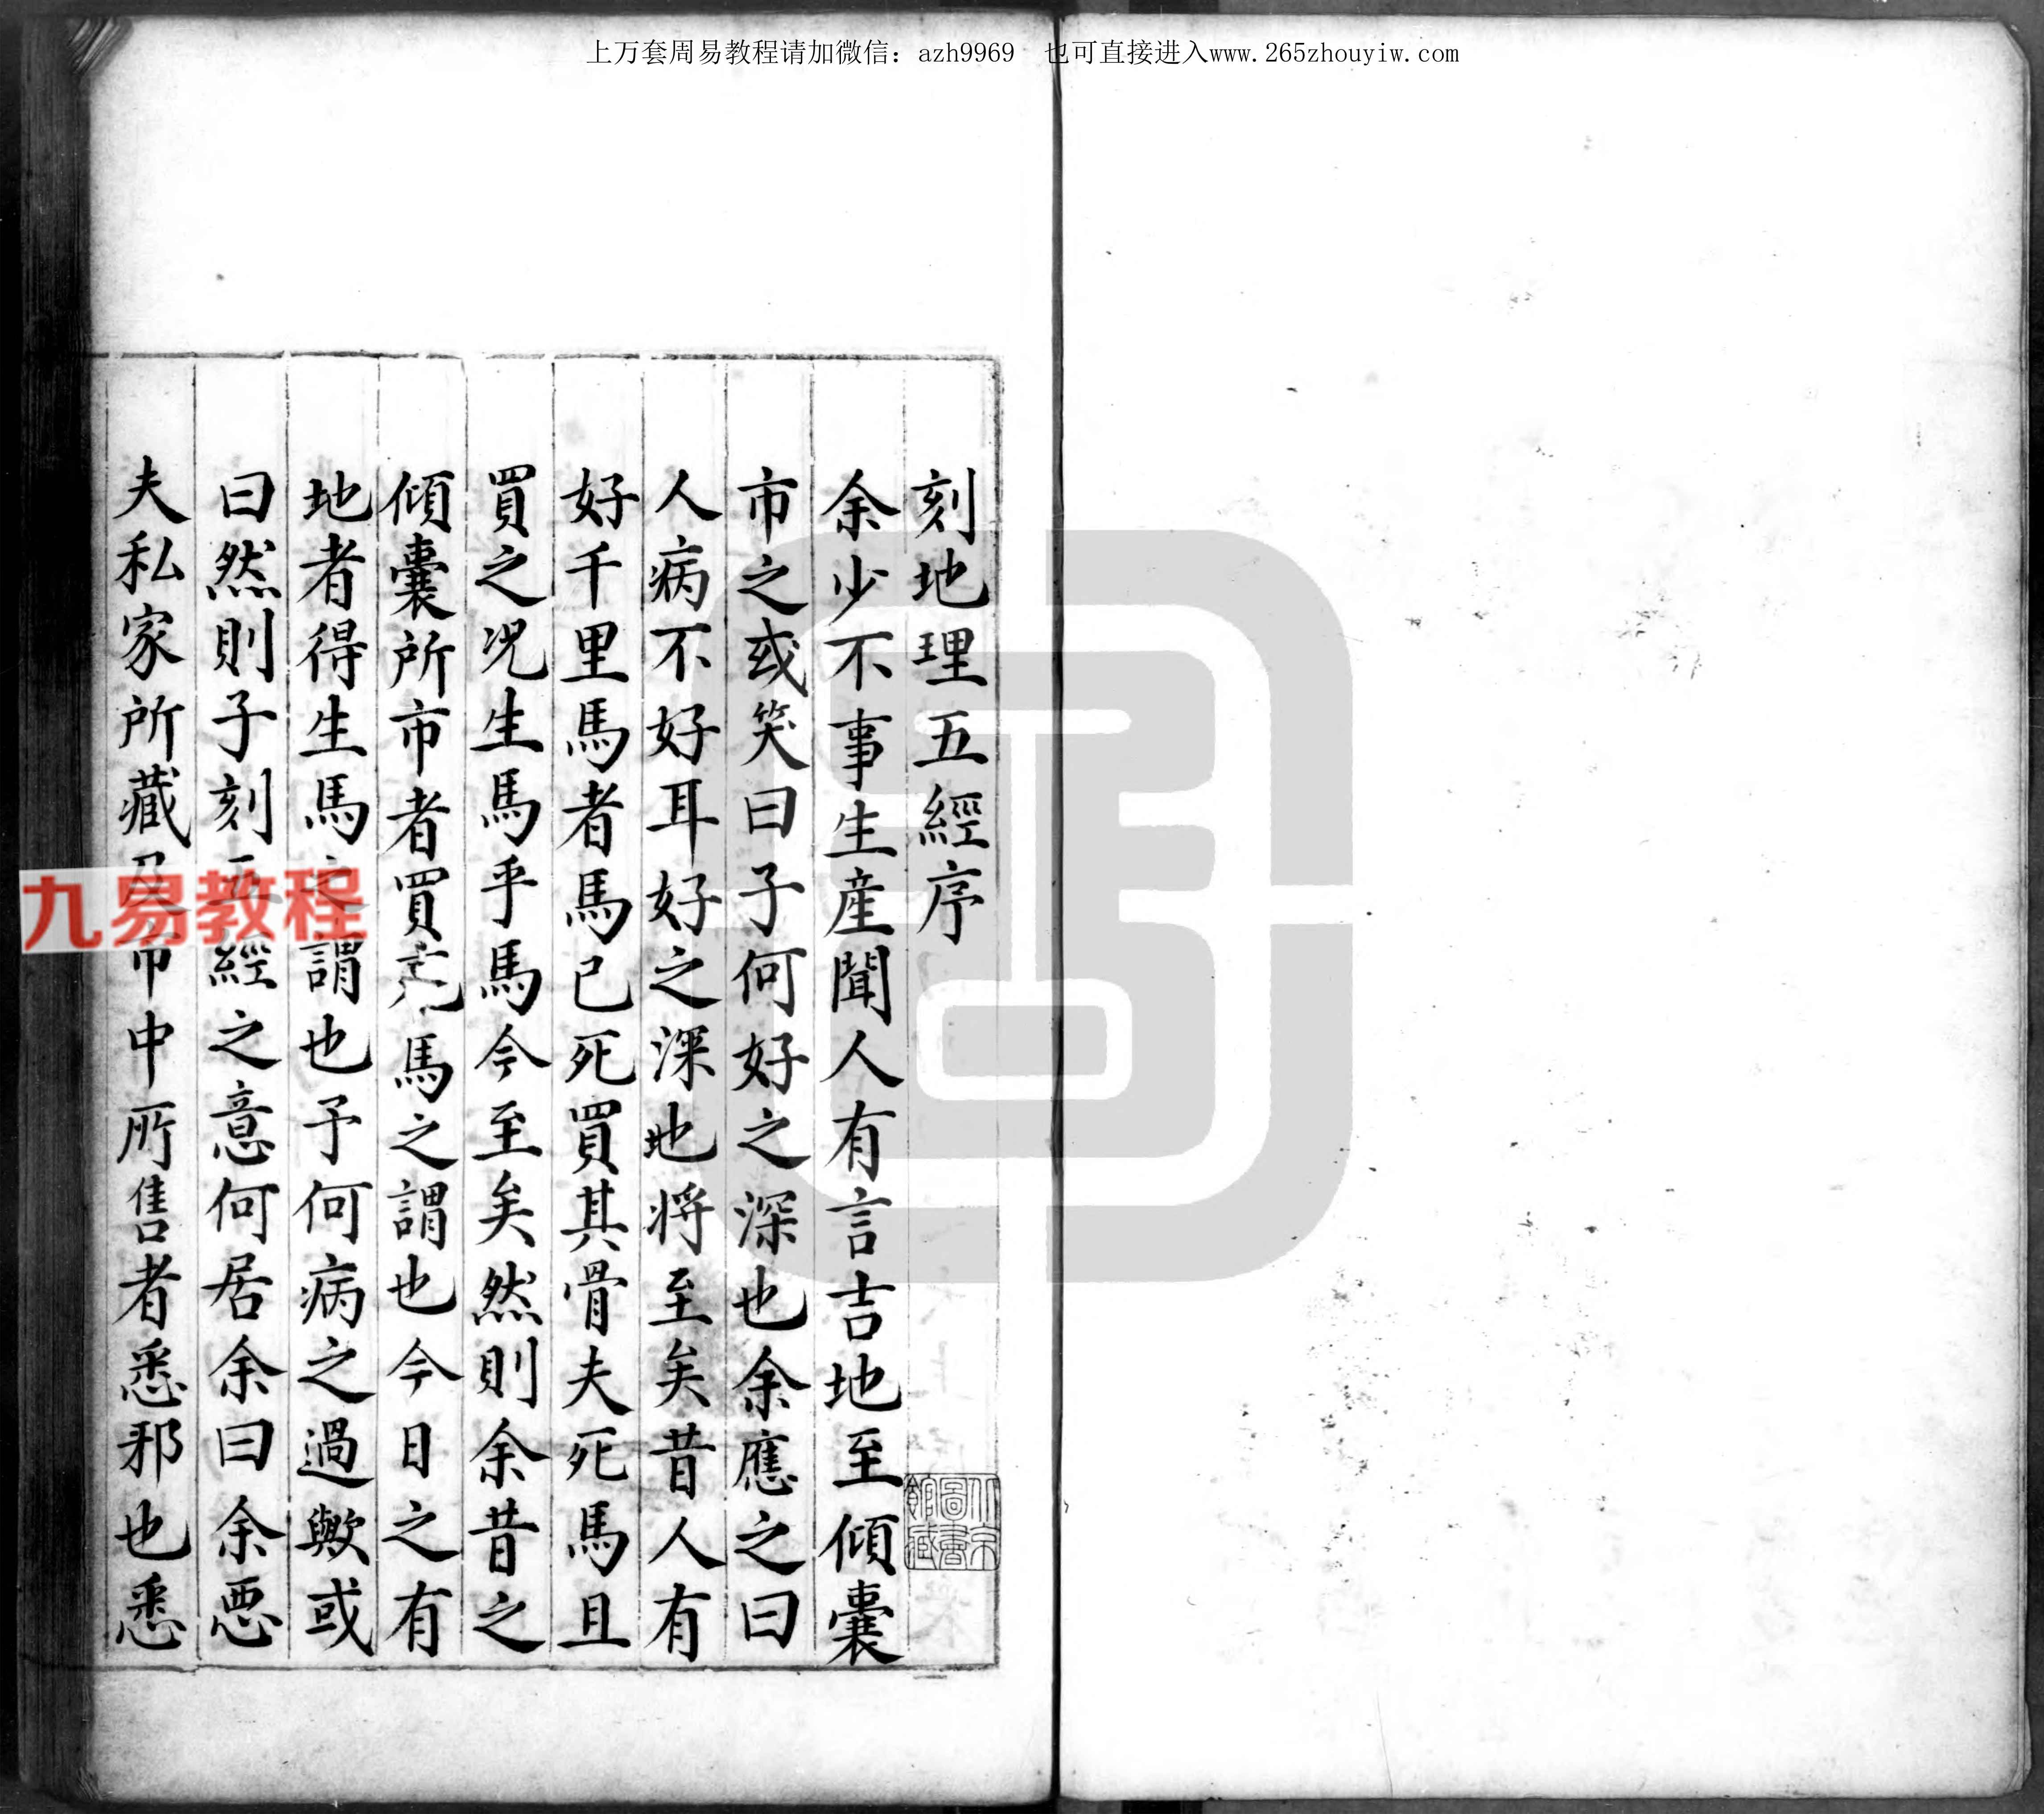 上万套周易教程请加微信：azh9969 也可直接进入www.265zhouyiw.com
刻地理五經序
余少不事生産聞人有言吉地至傾囊
市之或笑曰子何好之深也余應之曰
人病不好耳好之深地將至矣昔人有
好千里馬者馬已死買其骨夫死馬且
買之况生馬乎馬今至矣然則余昔之
傾囊所市者買死馬之謂也今日之有
地者得生馬之謂也予何病之過歟或
曰然則子刻五經之意何居余曰余惡
夫私家所藏及市中所售者悉邪也悉
九易教程
北京圖書館藏